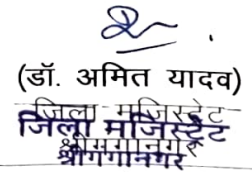 (डॉ. अमित यादव)
जिला मजिस्ट्रेट
जिला मजिस्ट्रेट
श्रीगंगानगर
श्रीगंगानगर